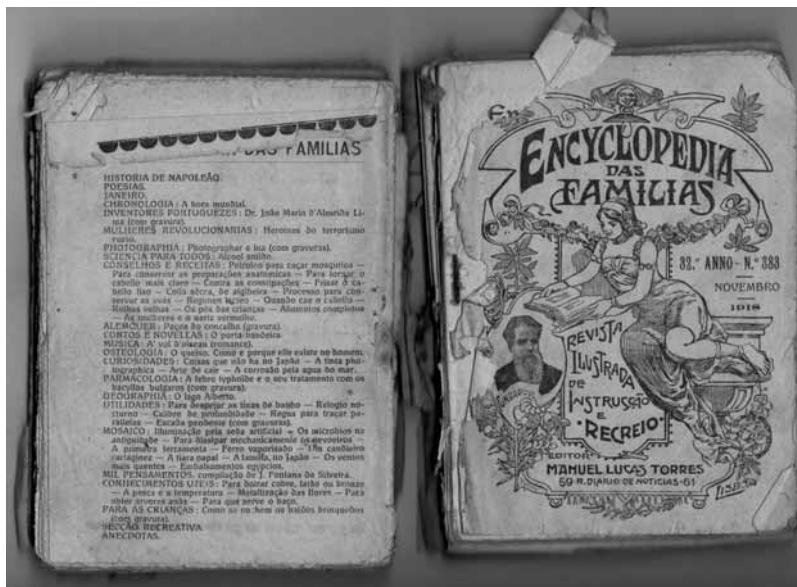 DAS FAMILIAS
HISTORIA DE NAPOLEÃO.
POESIAS.
JANEIRO.
CHRONOLOGIA: A hora mundial.
INVENTORES PORTUGUEZES: Dr. João Maria d'Almeida Li-
ma (com gravura).
MULHERES REVOLUCIONARIAS: Heroinas do terrorismo
russo.
PHOTOGRAPHIA: Photographar a lua (com gravuras).
SCIENCIA PARA TODOS: Alcool solido.
CONSELHOS E RECEITAS: Petroleo para caçar mosquitos —
Para conservar as preparações anatomicas — Para tornar o
cabello mais claro — Contra as constipações — Frisar o ca-
bello liso — Colla sêcca, de algibeira — Processo para con-
servar as uvas — Regimen lacteo — Quando cae o cabello —
Rolhas velhas — Os pés das crianças — Alimentos completos
— As mulheres e o nariz vermelho.
ALEMQUER: Paços do concelho (gravura).
CONTOS E NOVELLAS: O porta-bandeira.
MUSICA: A' vol d'oiseau (romance).
OSTEOLOGIA: O queixo. Como e porque elle existe no homem.
CURIOSIDADES: Coisas que não ha no Japão — A tinta pho-
tographica — Arte de cair — A corrosão pela agua do mar.
PARMACOLOGIA: A febre typhoide e o seu tratamento com os
bacyllus bulgaros (com gravura).
GEOGRAPHIA: O lago Alberto.
UTILIDADES: Para despejar as tinas de banho — Relogio no-
cturno — Calibre de profundidade — Regua para traçar pa-
rallelas — Escada pendente (com gravuras).
MOSAICO: Illuminação pela seda artificial — Os microbios na
antiguidade — Para dissipar mechanicamente os nevoeiros —
A primeira ferramenta — Ferro vaporisado — Um candieiro
cartaginez — A tiara papal — A familia, no Japão — Os ventos
mais quentes — Embalsamentos egypcios.
MIL PENSAMENTOS, compilação de J. Fontana da Silveira.
CONHECIMENTOS UTEIS: Para doirar cobre, latão ou bronze
— A pesca e a temperatura — Metallização das flores — Para
obter arvores anãs — Para que serve o baço.
PARA AS CRIANÇAS: Como se enchem os balões brinquedos
(com gravura).
SECÇÃO RECREATIVA.
ANECDOTAS.
ENCYCLOPEDIA
DAS
FAMILIAS
32.º ANNO - N.º 383
NOVEMBRO
1918
REVISTA
ILLUSTRADA
DE
INSTRUCÇÃO
E
RECREIO
EDITOR
MANUEL LUCAS TORRES
59-R. DIARIO DE NOTICIAS-61
LISBOA